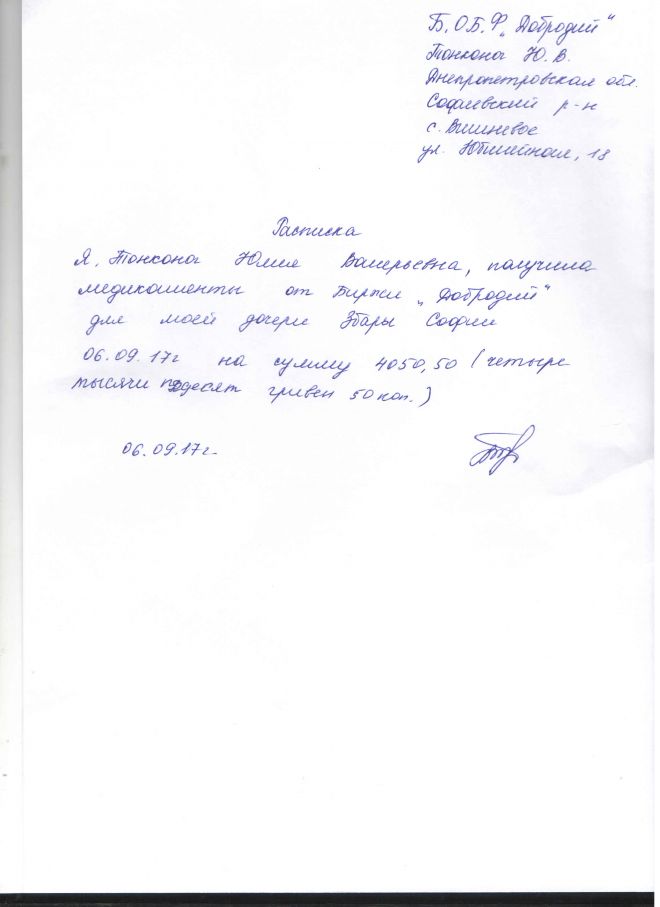 Б.О.Б.Ф „Добродий"
Тонконог Ю. В.
Днепропетровская обл.
Софиевский р-н
с. Вишневое
ул. Юбилейная, 18
Расписка
Я, Тонконог Юлия Валерьевна, получила
медикаменты от Биржи „Добродий"
для моей дочери Збары Софии
06.09.17г на сумму 4050,50 (четыре
тысячи гривен 50 коп.)
06.09.17г.